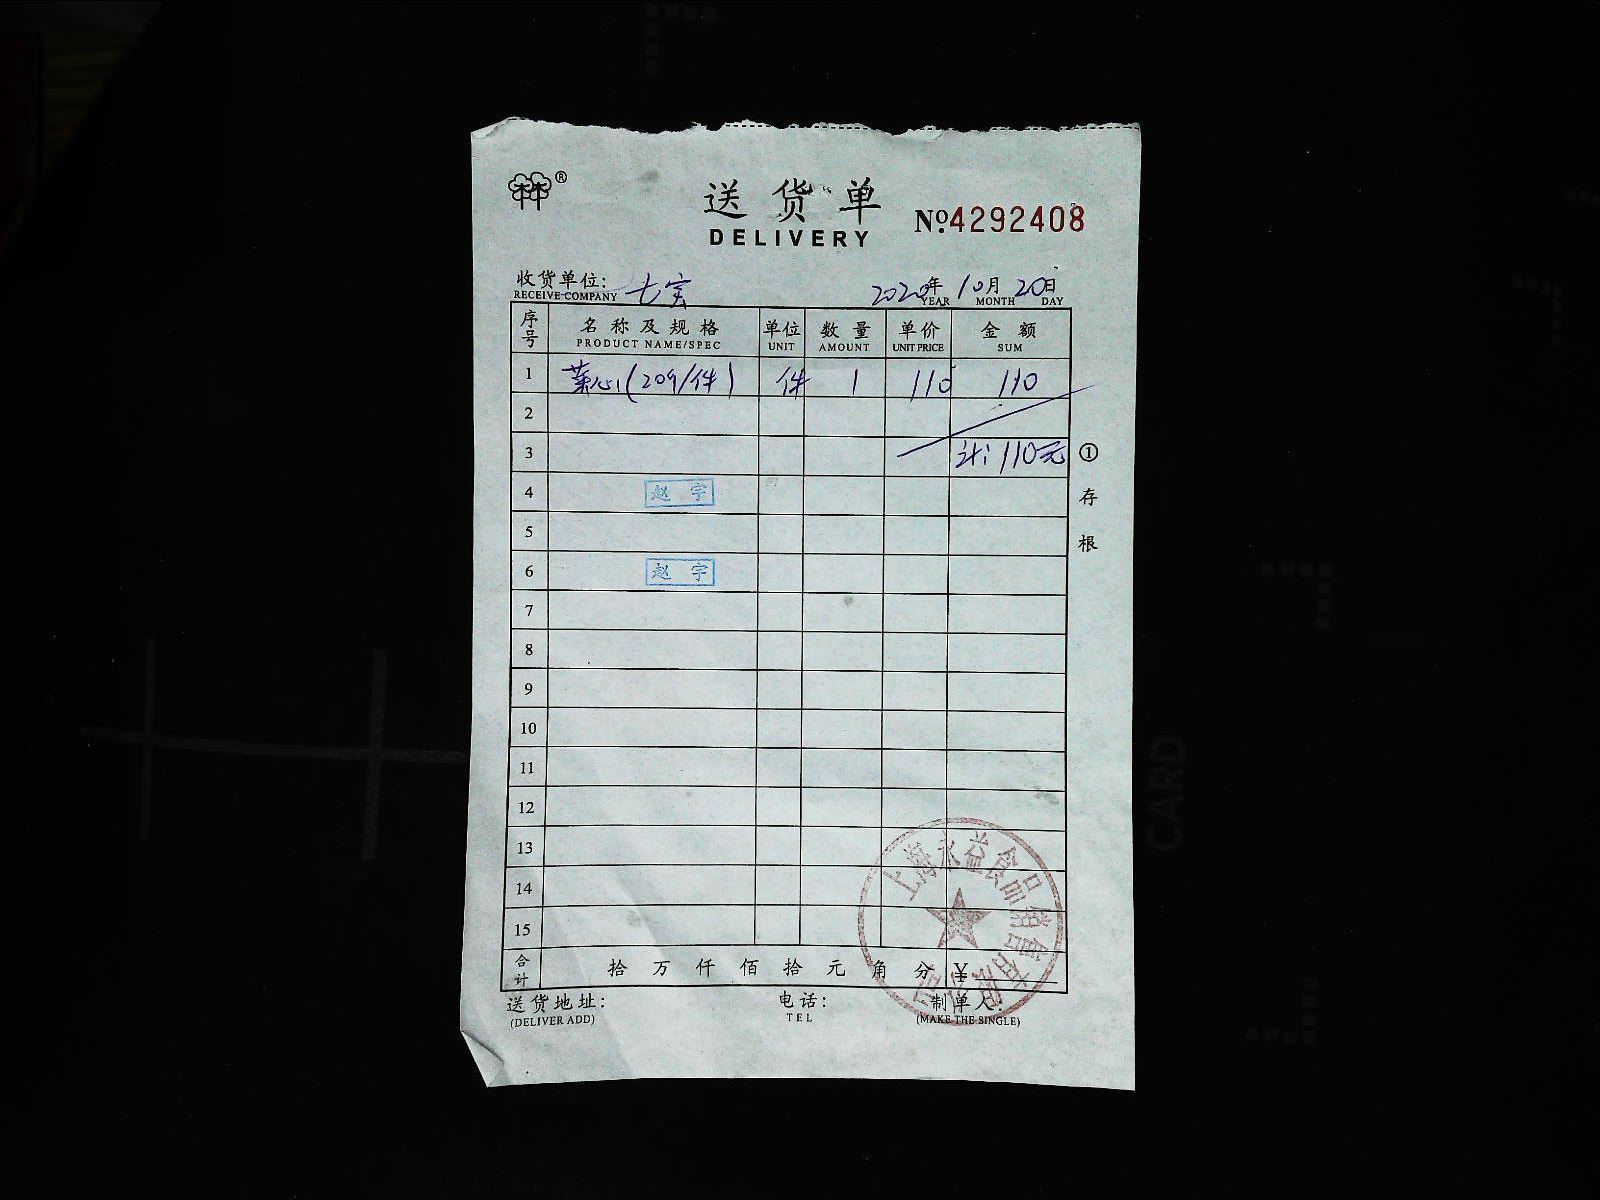 林®
送货单
DELIVERY
No.4292408
收货单位: 七宝 2020年10月20日
RECEIVE COMPANY YEAR MONTH DAY
序号 名称及规格 单位 数量 单价 金额
PRODUCT NAME/SPEC UNIT AMOUNT UNIT PRICE SUM
1 菜心(20g/件) 件 1 110 110
2
3 计:110元
4 赵宇
5
6 赵宇
7
8
9
10
11
12
13
14
15
合计 拾万仟佰拾元角分 ¥
①存根
上海永益食品销售有限公司
送货地址: 电话: 制单人:
(DELIVER ADD) TEL (MAKE THE SINGLE)
CARD